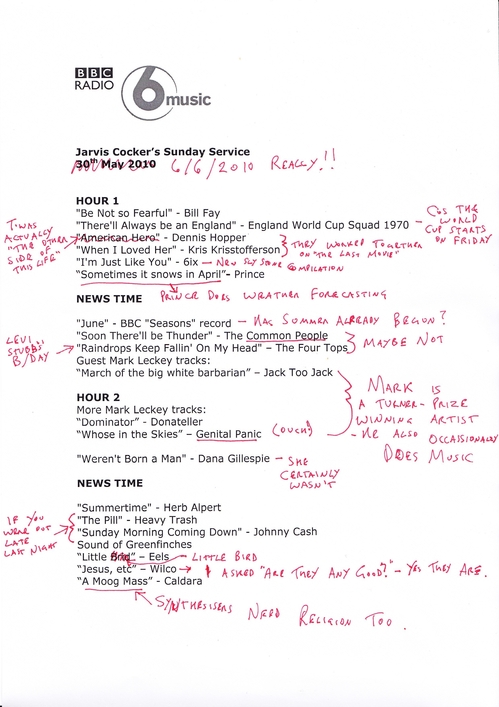 BBC
RADIO
6 music
Jarvis Cocker's Sunday Service
30th May 2010 6/6/2010 REALLY!!
HOUR 1
"Be Not so Fearful" - Bill Fay
"There'll Always be an England" - England World Cup Squad 1970 – COS THE WORLD CUP STARTS ON FRIDAY
TWAS ACTUALLY "THE OTHER SIDE OF THIS LIFE" "American Hero" - Dennis Hopper
"When I Loved Her" - Kris Kristofferson } THEY WORKED TOGETHER ON "THE LAST MOVIE"
"I'm Just Like You" - 6ix – NEW SLY STONE COMPILATION
"Sometimes it snows in April"– Prince
PRINCE DOES WEATHER FORECASTING
NEWS TIME
"June" - BBC "Seasons" record – HAS SUMMER ALREADY BEGUN?
"Soon There'll be Thunder" - The Common People } MAYBE NOT
LEVI STUBBS' B/DAY → "Raindrops Keep Fallin' On My Head" – The Four Tops
Guest Mark Leckey tracks:
"March of the big white barbarian" – Jack Too Jack
HOUR 2
More Mark Leckey tracks:
"Dominator" - Donateller
"Whose in the Skies" – Genital Panic (OUCH)
MARK IS
A TURNER-PRIZE
WINNING ARTIST
- HE ALSO OCCASSIONALLY
DOES MUSIC
"Weren't Born a Man" - Dana Gillespie – SHE CERTAINLY WASN'T
NEWS TIME
"Summertime" - Herb Alpert
IF YOU WERE OUT LATE LAST NIGHT { "The Pill" - Heavy Trash
"Sunday Morning Coming Down" - Johnny Cash
Sound of Greenfinches
"Little Bird" – Eels – LITTLE BIRD
"Jesus, etc" – Wilco → I ASKED "ARE THEY ANY GOOD?" – YES THEY ARE.
"A Moog Mass" - Caldara
SYNTHESISERS NEED RELIGION TOO.